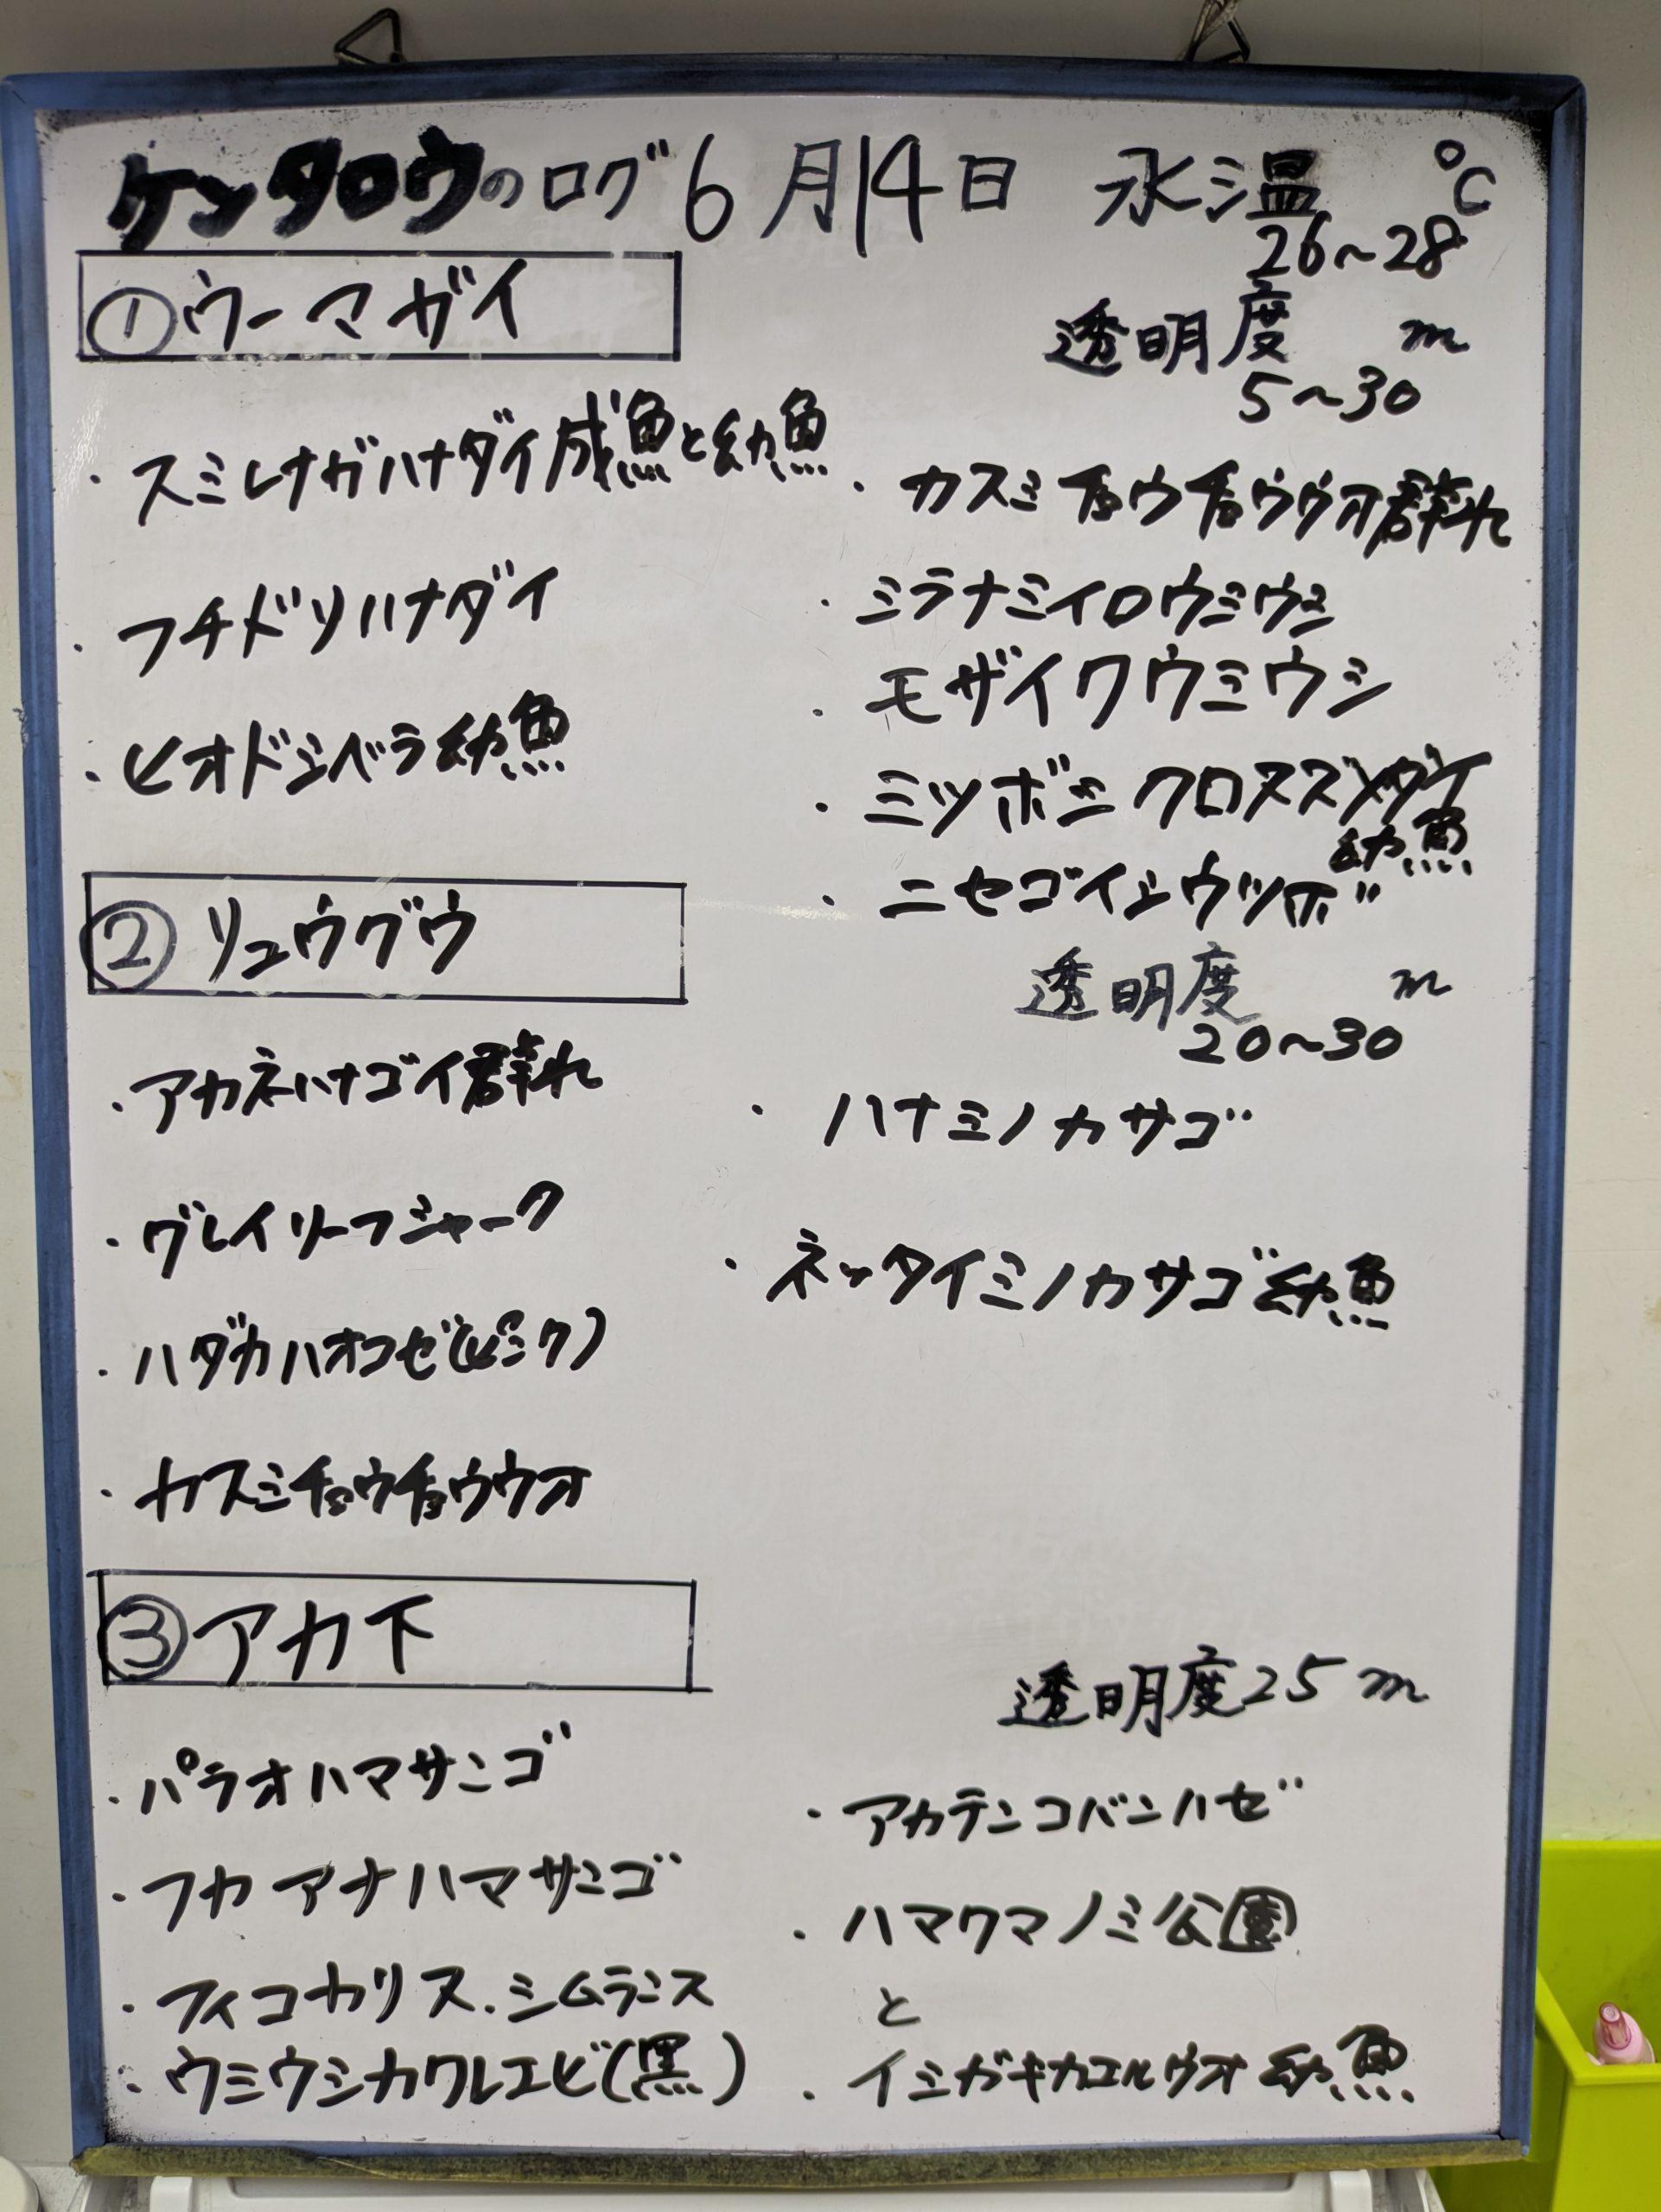 ケンタロウのログ 6月14日 水温 ℃
26~28
①ウーマガイ
透明度 m
5~30
・スミレナガハナダイ成魚と幼魚
・フチドリハナダイ
・ヒオドシベラ幼魚
・カスミチョウチョウウオ群れ
・ミラナミイロウミウシ
・モザイクウミウシ
・ミツボシクロスズメダイ
幼魚
・ニセゴイシウツボ
②リュウグウ
透明度 m
20~30
・アカネハナゴイ群れ
・グレイリーフシャーク
・ハダカハオコゼ(ピンク)
・カスミチョウチョウウオ
・ハナミノカサゴ
・ネッタイミノカサゴ幼魚
③アカ下
透明度25m
・パラオハマサンゴ
・フカアナハマサンゴ
・フィコカリス.シムランス
・ウミウシカクレエビ(黒)
・アカテンコバンハゼ
・ハマクマノミ公園
と
・イシガキカエルウオ幼魚